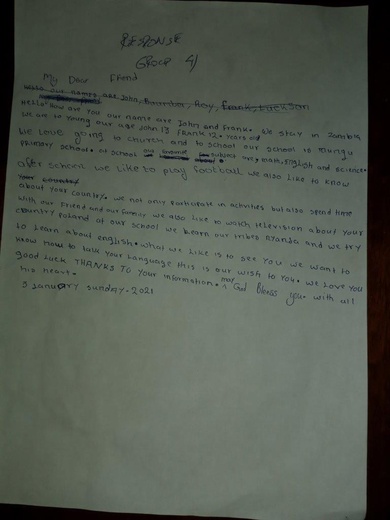 RESPONSE
GROUP 4/
My Dear Friend
Hello our names are John, Roy, Frank, Jackson
Hello How are you our name are John and Frank. We stay in Zambia
We are so young our age John 13 Frank 12. Years old
We love going to church and to school our school is
primary school. At school our subject are, math, English and science.
after school we like to play football we also like to know
your country
about your country. We not only participate in activities but also spend time
with our friend and our family we also like to watch television about your
country Poland at our school we learn our tribes nyanja and we try
to learn about english. what we like is to see you we want to
know how to talk your language this is our wish to you. We love you
good luck THANKS TO your information. may God Bless you. with all
his heart.
3 January sunday. 2021